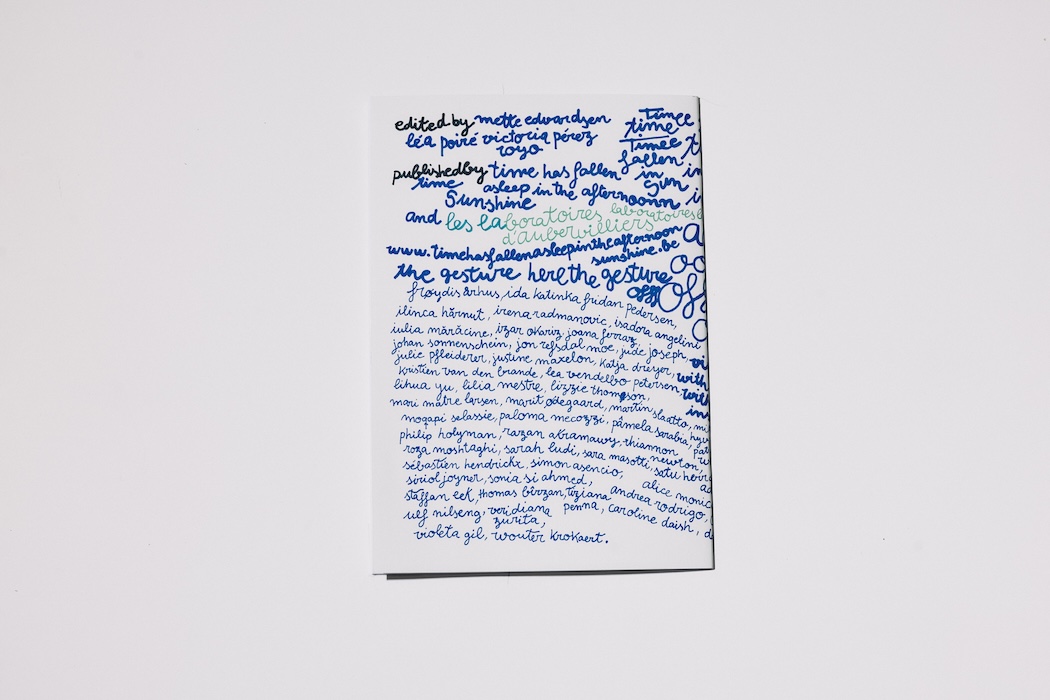 edited by mette edvardsen
léa poiré victoria pérez
royo
published by time has fallen
time asleep in the afternoonn
Sunshine
and les laboratoires laboratoires
d'aubervilliers
www.timehasfallenasleepintheafternoon
sunshine.be
the gesture here the gesture
off Off
Timee
time
Timee t
fallen in
in
sun
frøydis århus, ida katinka fridan pedersen,
ilinca hărnut, irena radmanovic, isadora angelini
iulia mărăcine, izar okariz, joana ferraz,
johan sonnenschein, jon refsdal moe, jude joseph,
julie pfleiderer, justine maxelon, katja dreyer,
kristien van den brande, lea vendelbo petersen with
lihua yu, lilia mestre, lizzie thompson,
mari matre larsen, marit ødegaard, martin slaatto,
mogapi selassie, paloma mecozzi, pâmela sarabia,
philip holyman, razan akramawy, rhiannon newton,
roza moshtaghi, sarah ludi, sara masotti, satu
sébastien hendrickx, simon asencio,
siriol joyner, sonia si ahmed, alice
staffan eek, thomas bîrzan, tiziana andrea rodrigo,
ulf nilseng, veridiana penna, caroline daish,
zurita,
violeta gil, wouter krokaert.